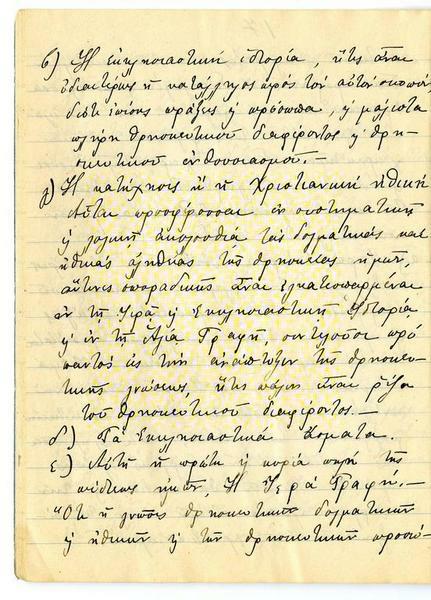 β) Ἡ ἐκκλησιαστική ἱστορία, ἥτις εἶναι
ἰδιαιτέρως ἡ κατάλληλος πρός τόν αὐτόν σκοπόν,
διότι ἐπίσης πράξεις ἤ πρόσωπα, ἤ μάλιστα
πλήρη θρησκευτικοῦ διαφέροντος ἤ θρη-
σκευτικοῦ ἐνθουσιασμοῦ. —
γ) Ἡ κατήχησις ἤ ἡ Χριστιανική ἠθική
Αὗται προσφέρουσαι ἐν συστηματικῇ
ἤ λογικῇ ἀκολουθίᾳ τάς δογματικάς καί
ἠθικάς ἀληθείας τῆς θρησκείας ἡμῶν,
αἵτινες σποραδικῶς εἶναι ἐγκατεσπαρμέναι
ἐν τῇ Ἱερᾷ ἤ Ἐκκλησιαστικῇ Ἱστορίᾳ
ἤ ἐν τῇ Ἁγίᾳ Γραφῇ, συντελοῦσι πρό
παντός εἰς τήν ἀνάπτυξιν τῆς θρησκευ-
τικῆς γνώσεως, ἥτις πάλιν εἶναι ῥίζα
τοῦ θρησκευτικοῦ διαφέροντος. —
δ) Τά Ἐκκλησιαστικά ᾄσματα.
ε) Αὐτή ἡ πρώτη ἤ κυρία πηγή τῆς
πίστεως ἡμῶν, Ἡ Ἱερά Γραφή. —
"Ὅτι ἡ γνῶσις θρησκευτικῶν δογματικῶν
ἤ ἠθικῶν ἤ τῶν θρησκευτικῶν προσώ-